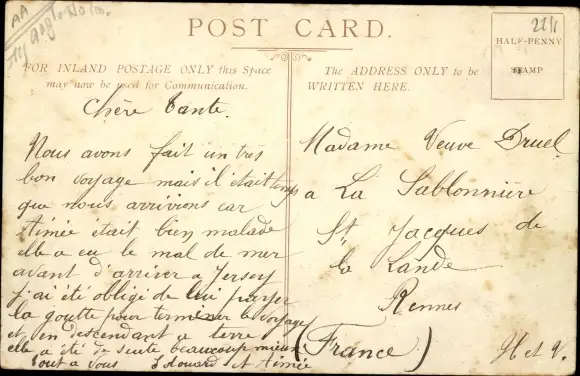 AA
POST CARD.
22/1
HALF-PENNY
STAMP
FOR INLAND POSTAGE ONLY this Space
may now be used for Communication.
The ADDRESS ONLY to be
WRITTEN HERE.
Chère Tante.
Nous avons fait un très
bon voyage mais il était temps
que nous arrivions car
Aimée était bien malade
elle a eu le mal de mer
avant d'arriver a Jersey
j'ai été obligé de lui payer
la goutte pour terminer le voyage
et en descendant a terre
elle a été de suite beaucoup mieux
tout a vous Edouard et Aimée
Madame Veuve Druel
a La Sablonnière
St Jacques de
la Lande
Rennes
(France)
H et V.